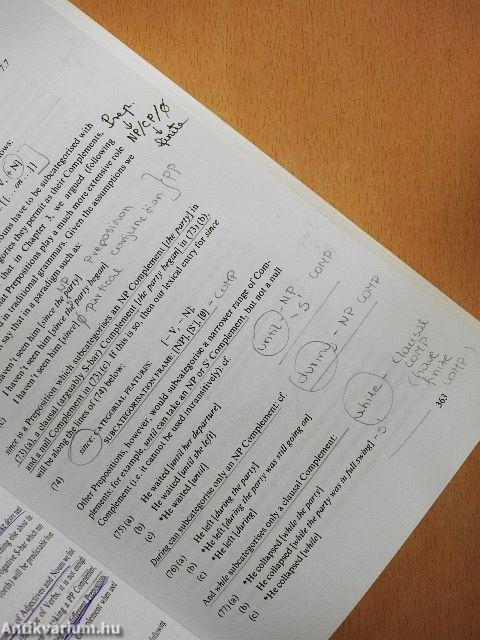 7.7
Prep.
NP/CP/Ø
finite
nouns have to be subcategorised with
gories they permit as their Complements,
that in Chapter 3, we argued (following
that Prepositions play a much more extensive role
in traditional grammars. Given the assumptions we
say that in a paradigm such as:
haven't seen him [since the party]
I haven't seen him [since the party began]
I haven't seen him [since]
NP preposition
conjunction
PP
since is a Preposition which subcategorises an NP Complement [the party] in
(73)(a), a clausal (arguably S-bar) Complement [the party began] in (73)(b),
and a null Complement in (73)(c). If this is so, then our lexical entry for since
will be along the lines of (74) below:
(74) since: CATEGORIAL FEATURES: [−V, −N]
SUBCATEGORISATION FRAME: [NP], [S'], [Ø] - COMP
Other Prepositions, however, would subcategorise a narrower range of Com-
plements: for example, until can take an NP or S' Complement, but not a null
Complement (i.e. it cannot be used intransitively): cf.
(75) (a) He waited [until her departure]
(b) He waited [until she left]
(c) *He waited [until]
During can subcategorise only an NP Complement: cf.
(76) (a) He left [during the party]
(b) *He left [during the party was still going on]
(c) *He left [during]
And while subcategorises only a clausal Complement:
(77) (a) *He collapsed [while the party]
(b) He collapsed [while the party was in full swing] - S'
(c) *He collapsed [while]
until - NP COMP
S'
during - NP COMP
while - clausal
COMP
(have
finite
COMP)
363
of Adjectives and Noun
of Verbs, it is not
ing a PP Complement
different Preposition
Antikvarium.hu